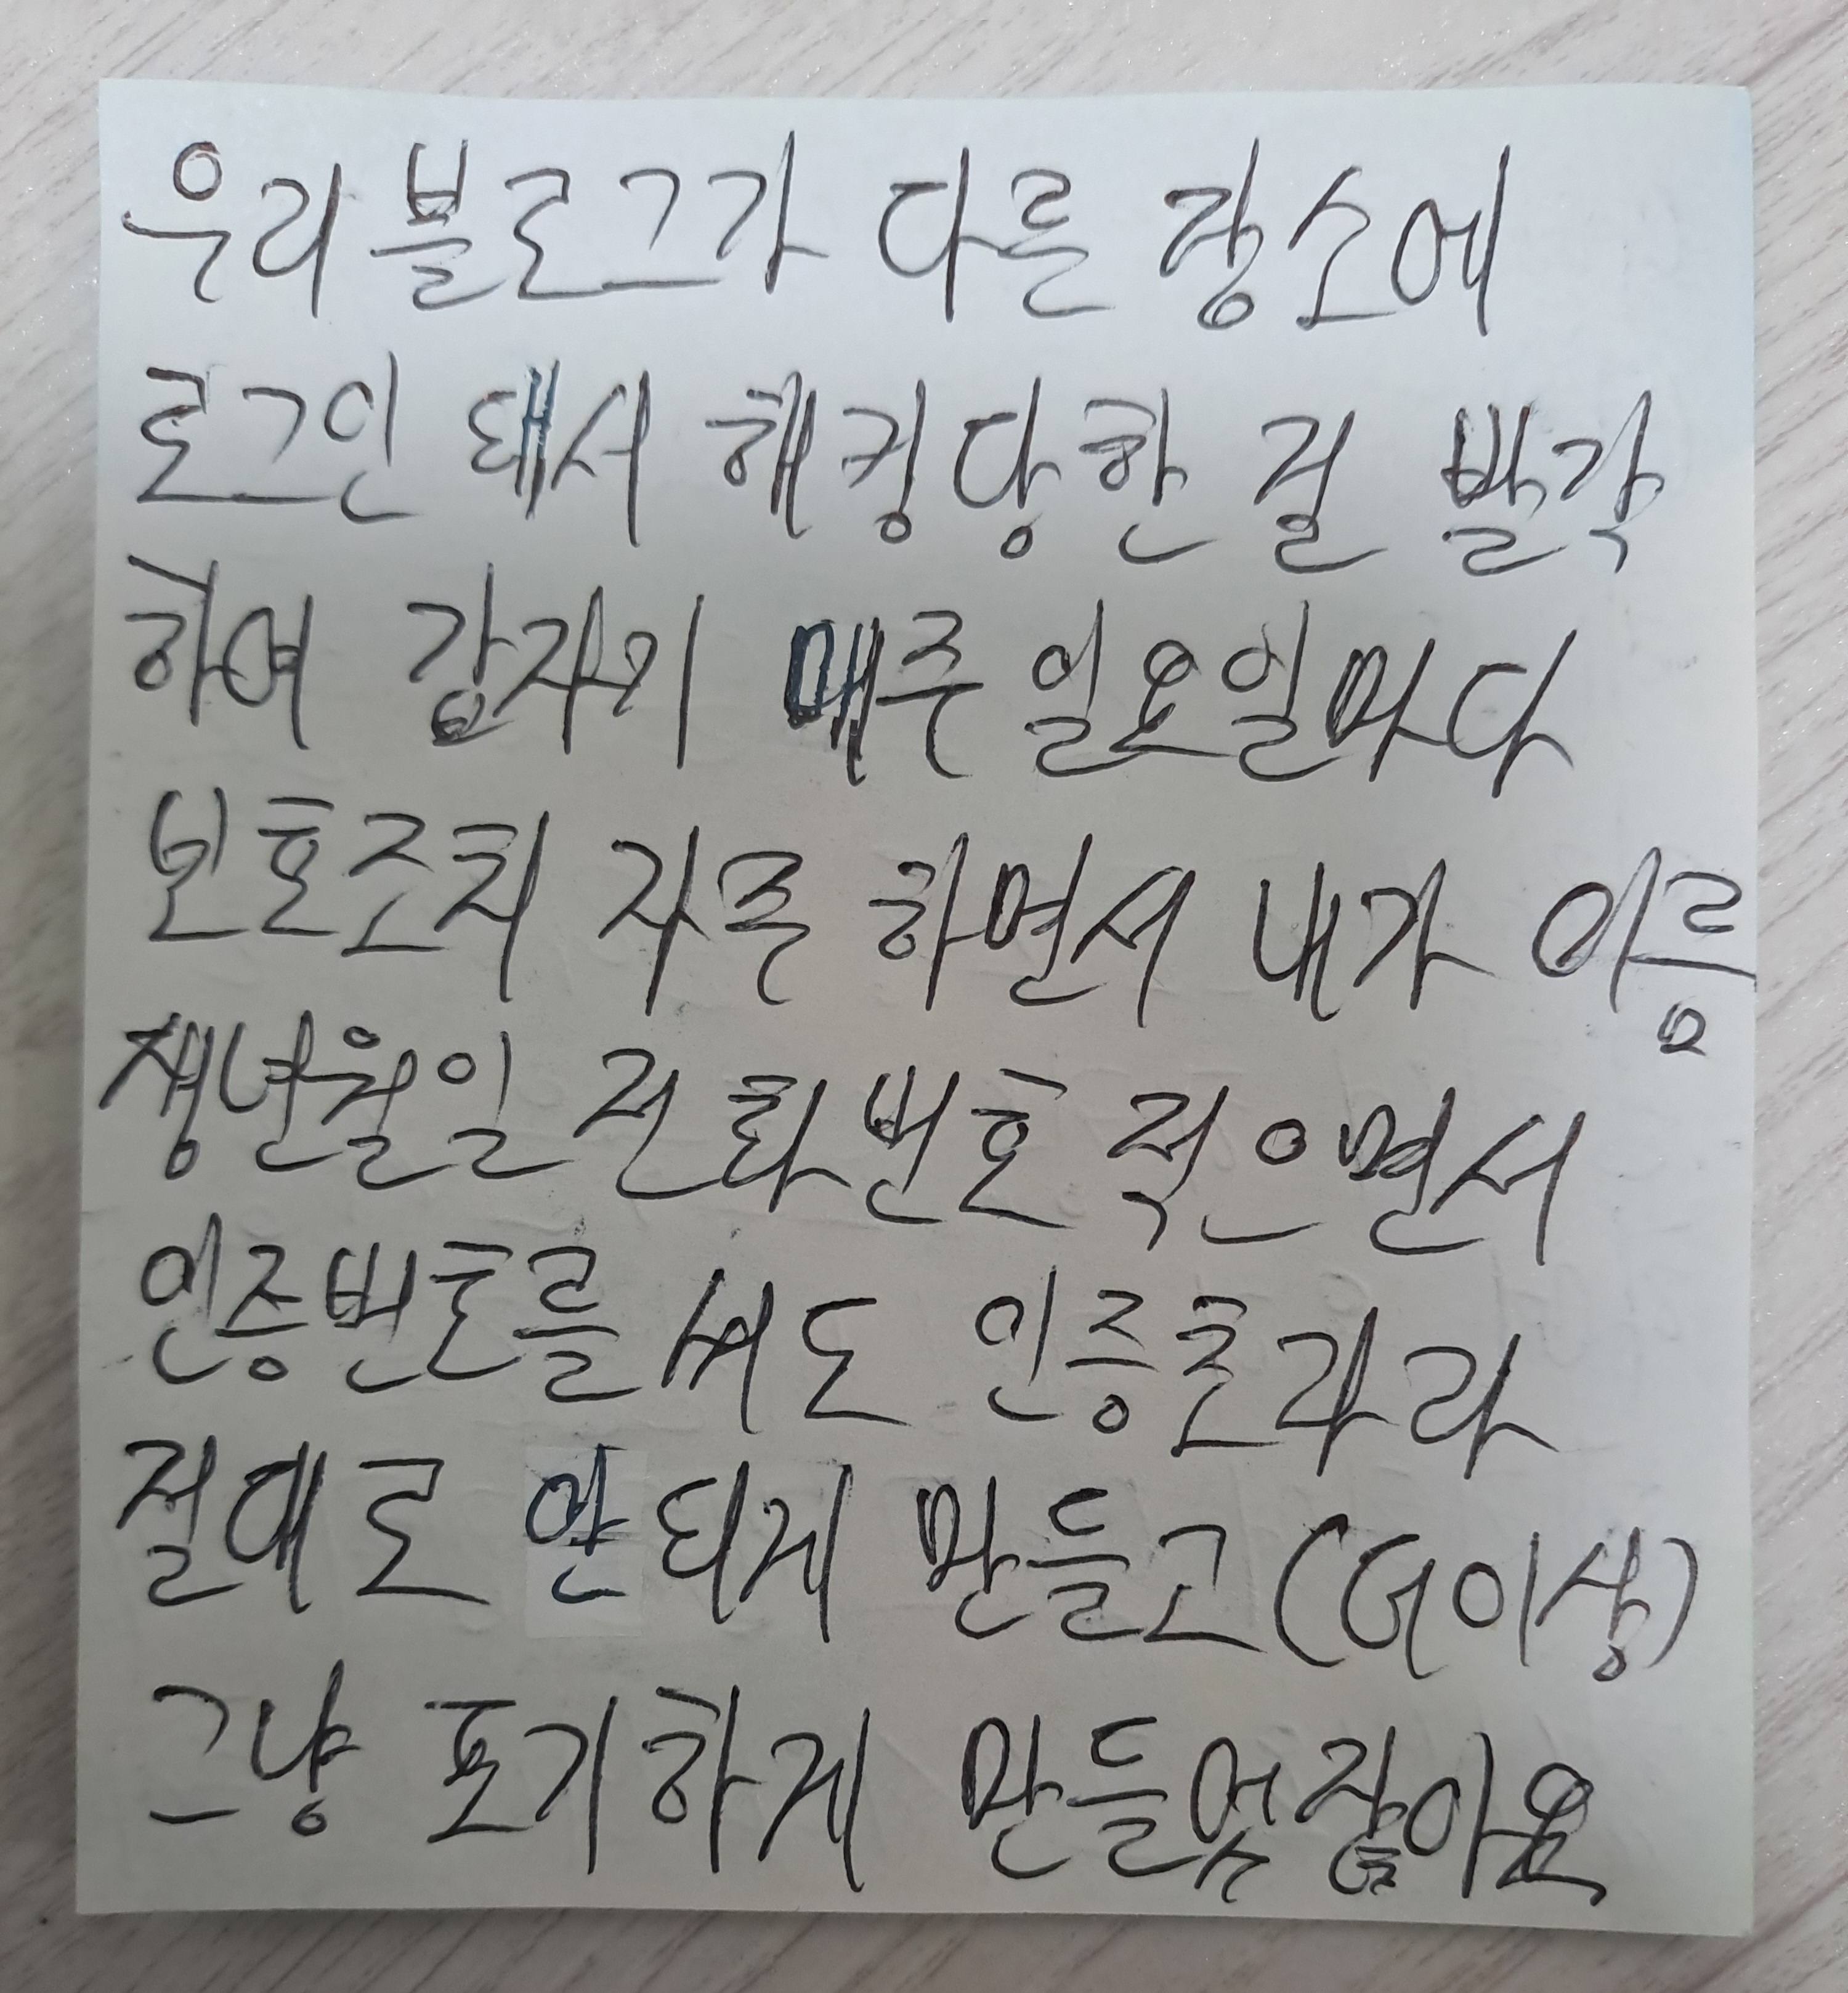 우리블로그가 다른 장소에
로그인 돼서 해킹당한 걸 발각
하여 갑자기 매주일요일마다
보호조치 자주 하면서 내가 이름
생년월일 전화번호 적으면서
인증번호를 써도 인증초과라
절대로 안 되게 만들고(더이상)
그냥 포기하게 만들었잖아요